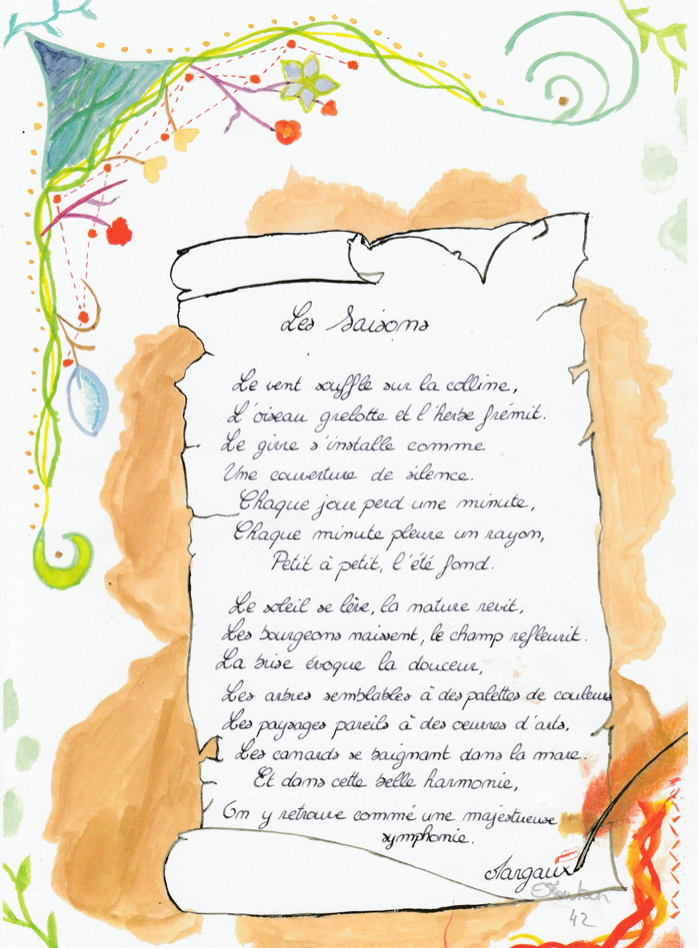 Les Saisons
Le vent souffle sur la colline,
L'oiseau grelotte et l'herbe frémit.
Le givre s'installe comme
Une couverture de silence.
Chaque jour perd une minute,
Chaque minute pleure un rayon,
Petit à petit, l'été fond.
Le soleil se lève, la nature revit,
Les bourgeons naissent, le champ refleurit.
La brise évoque la douceur,
Les arbres semblables à des palettes de couleurs
Les paysages pareils à des oeuvres d'arts,
Les canards se baignant dans la mare.
Et dans cette belle harmonie,
On y retrouve comme une majestueuse
symphonie.
Margaux
42